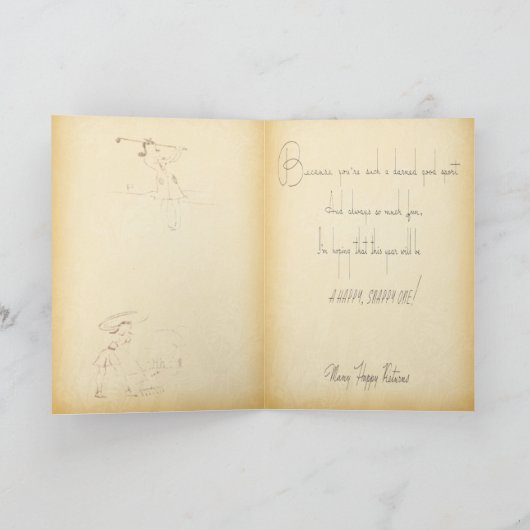 Because you're such a darned good sport
And always so much fun,
I'm hoping that this year will be
A HAPPY, SNAPPY ONE!
Many Happy Returns